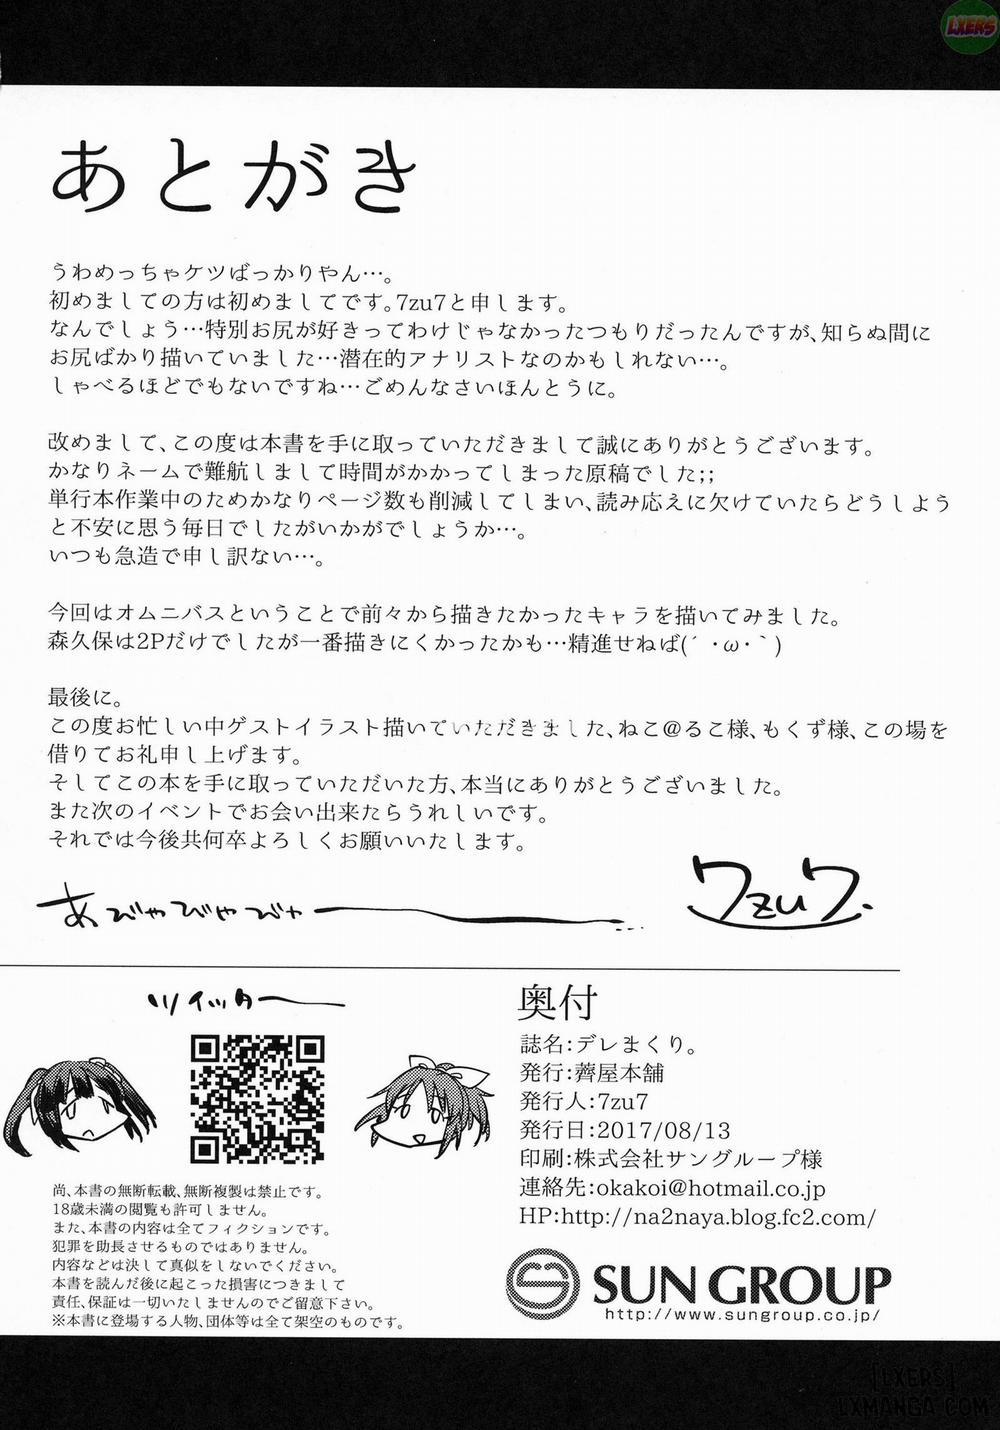 LXERS
あとがき
うわめっちゃケツばっかりやん…。
初めましての方は初めましてです。7zu7と申します。
なんでしょう…特別お尻が好きってわけじゃなかったつもりだったんですが、知らぬ間に
お尻ばかり描いていました…潜在的アナリストなのかもしれない…。
しゃべるほどでもないですね…ごめんなさいほんとうに。
改めまして、この度は本書を手に取っていただきまして誠にありがとうございます。
かなりネームで難航しまして時間がかかってしまった原稿でした;;
単行本作業中のためかなりページ数も削減してしまい、読み応えに欠けていたらどうしよう
と不安に思う毎日でしたがいかがでしょうか…。
いつも急造で申し訳ない…。
今回はオムニバスということで前々から描きたかったキャラを描いてみました。
森久保は2Pだけでしたが一番描きにくかったかも…精進せねば(´・ω・｀)
最後に。
この度お忙しい中ゲストイラスト描いていただきました、ねこ@るこ様、もくず様、この場を
借りてお礼申し上げます。
そしてこの本を手に取っていただいた方、本当にありがとうございました。
また次のイベントでお会い出来たらうれしいです。
それでは今後共何卒よろしくお願いいたします。
あびゃびゃびゃー
7zu7.
ツイッター
奥付
誌名:デレまくり。
発行:薺屋本舗
発行人:7zu7
発行日:2017/08/13
印刷:株式会社サングループ様
連絡先:okakoi@hotmail.co.jp
HP:http://na2naya.blog.fc2.com/
尚、本書の無断転載、無断複製は禁止です。
18歳未満の閲覧も許可しません。
また、本書の内容は全てフィクションです。
犯罪を助長させるものではありません。
内容などは決して真似をしないでください。
本書を読んだ後に起こった損害につきまして
責任、保証は一切いたしませんのでご留意下さい。
※本書に登場する人物、団体等は全て架空のものです。
SUN GROUP
http://www.sungroup.co.jp/
[LXERS]
LXMANGA.COM